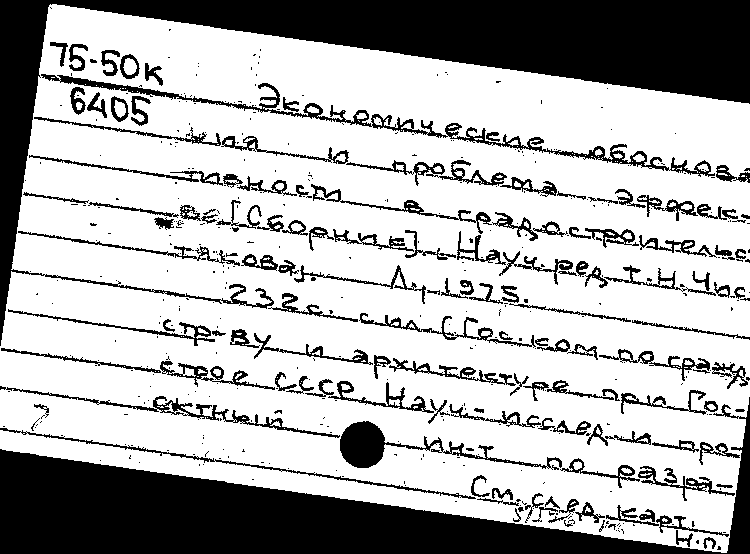 75-50к
6405
Экономические обоснова
ния и проблема эффек-
тивности в градостроительст
ве [Сборник]. [Науч. ред. Т.Н. Чис
тякова]. Л., 1975.
232с. с ил. (Гос. ком. по гражд.
стр-ву и архитектуре при Гос-
строе СССР. Науч.-исслед. и про-
ектный ин-т по разра-
См. след. карт.
н.п.